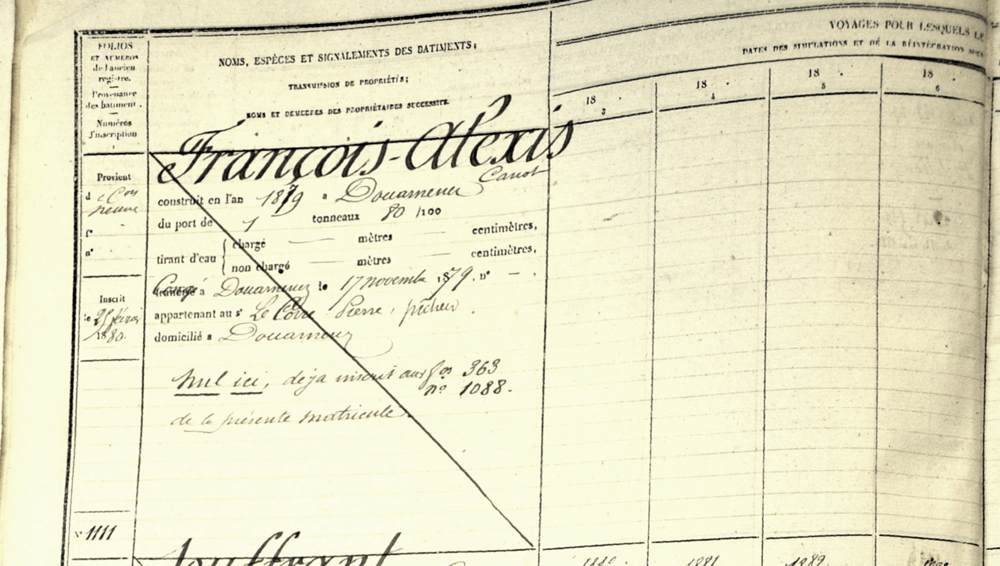 FOLIOS
ET NUMÉROS
de l'ancien
registre.
Provenance
des bâtiment.
Numéros
d'inscription
NOMS, ESPÈCES ET SIGNALEMENTS DES BATIMENTS;
TRANSMISSION DE PROPRIÉTÉS;
NOMS ET DEMEURES DES PROPRIÉTAIRES SUCCESSIFS.
VOYAGES POUR LESQUELS LE
DATES DES SIMULATIONS ET DE LA RÉINTÉGRATION
18 . 18 . 18 . 18
3 4 5 6
François-Alexis
Canot
Provient
de Con
neuve
f°
n°
construit en l'an 1879 à Douarnenez
du port de 1 tonneaux 80/100
tirant d'eau { chargé — mètres — centimètres,
non chargé — mètres — centimètres,
Douarnenez le 17 novembre 1879. n° — .
Inscrit
le 25 février
1880.
appartenant au sr Pierre, pêcheur
domicilié à Douarnenez
Nul ici, déja inscrit aux fos 363
no 1088.
de la présente matricule.
N° 1111
Souffrant
1881 1882